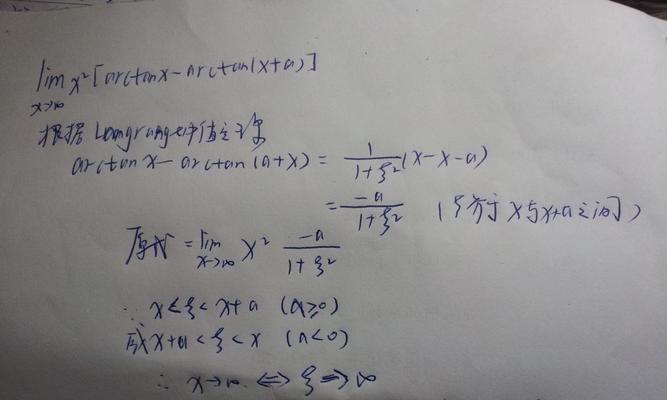 lim x² [arctanx - arctan(x+a)]
x→∞
根据Langrange中值定理
arctan x - arctan (a+x) = 1/(1+ξ²) (x-x-a)
= -a/(1+ξ²) (ξ介于x与x+a之间)
原式 = lim x→∞ x² -a/(1+ξ²)
∵ x≤ξ<x+a (a≥0)
或x+a<ξ<x (a<0)
∴ x→∞ ⇔ ξ→∞